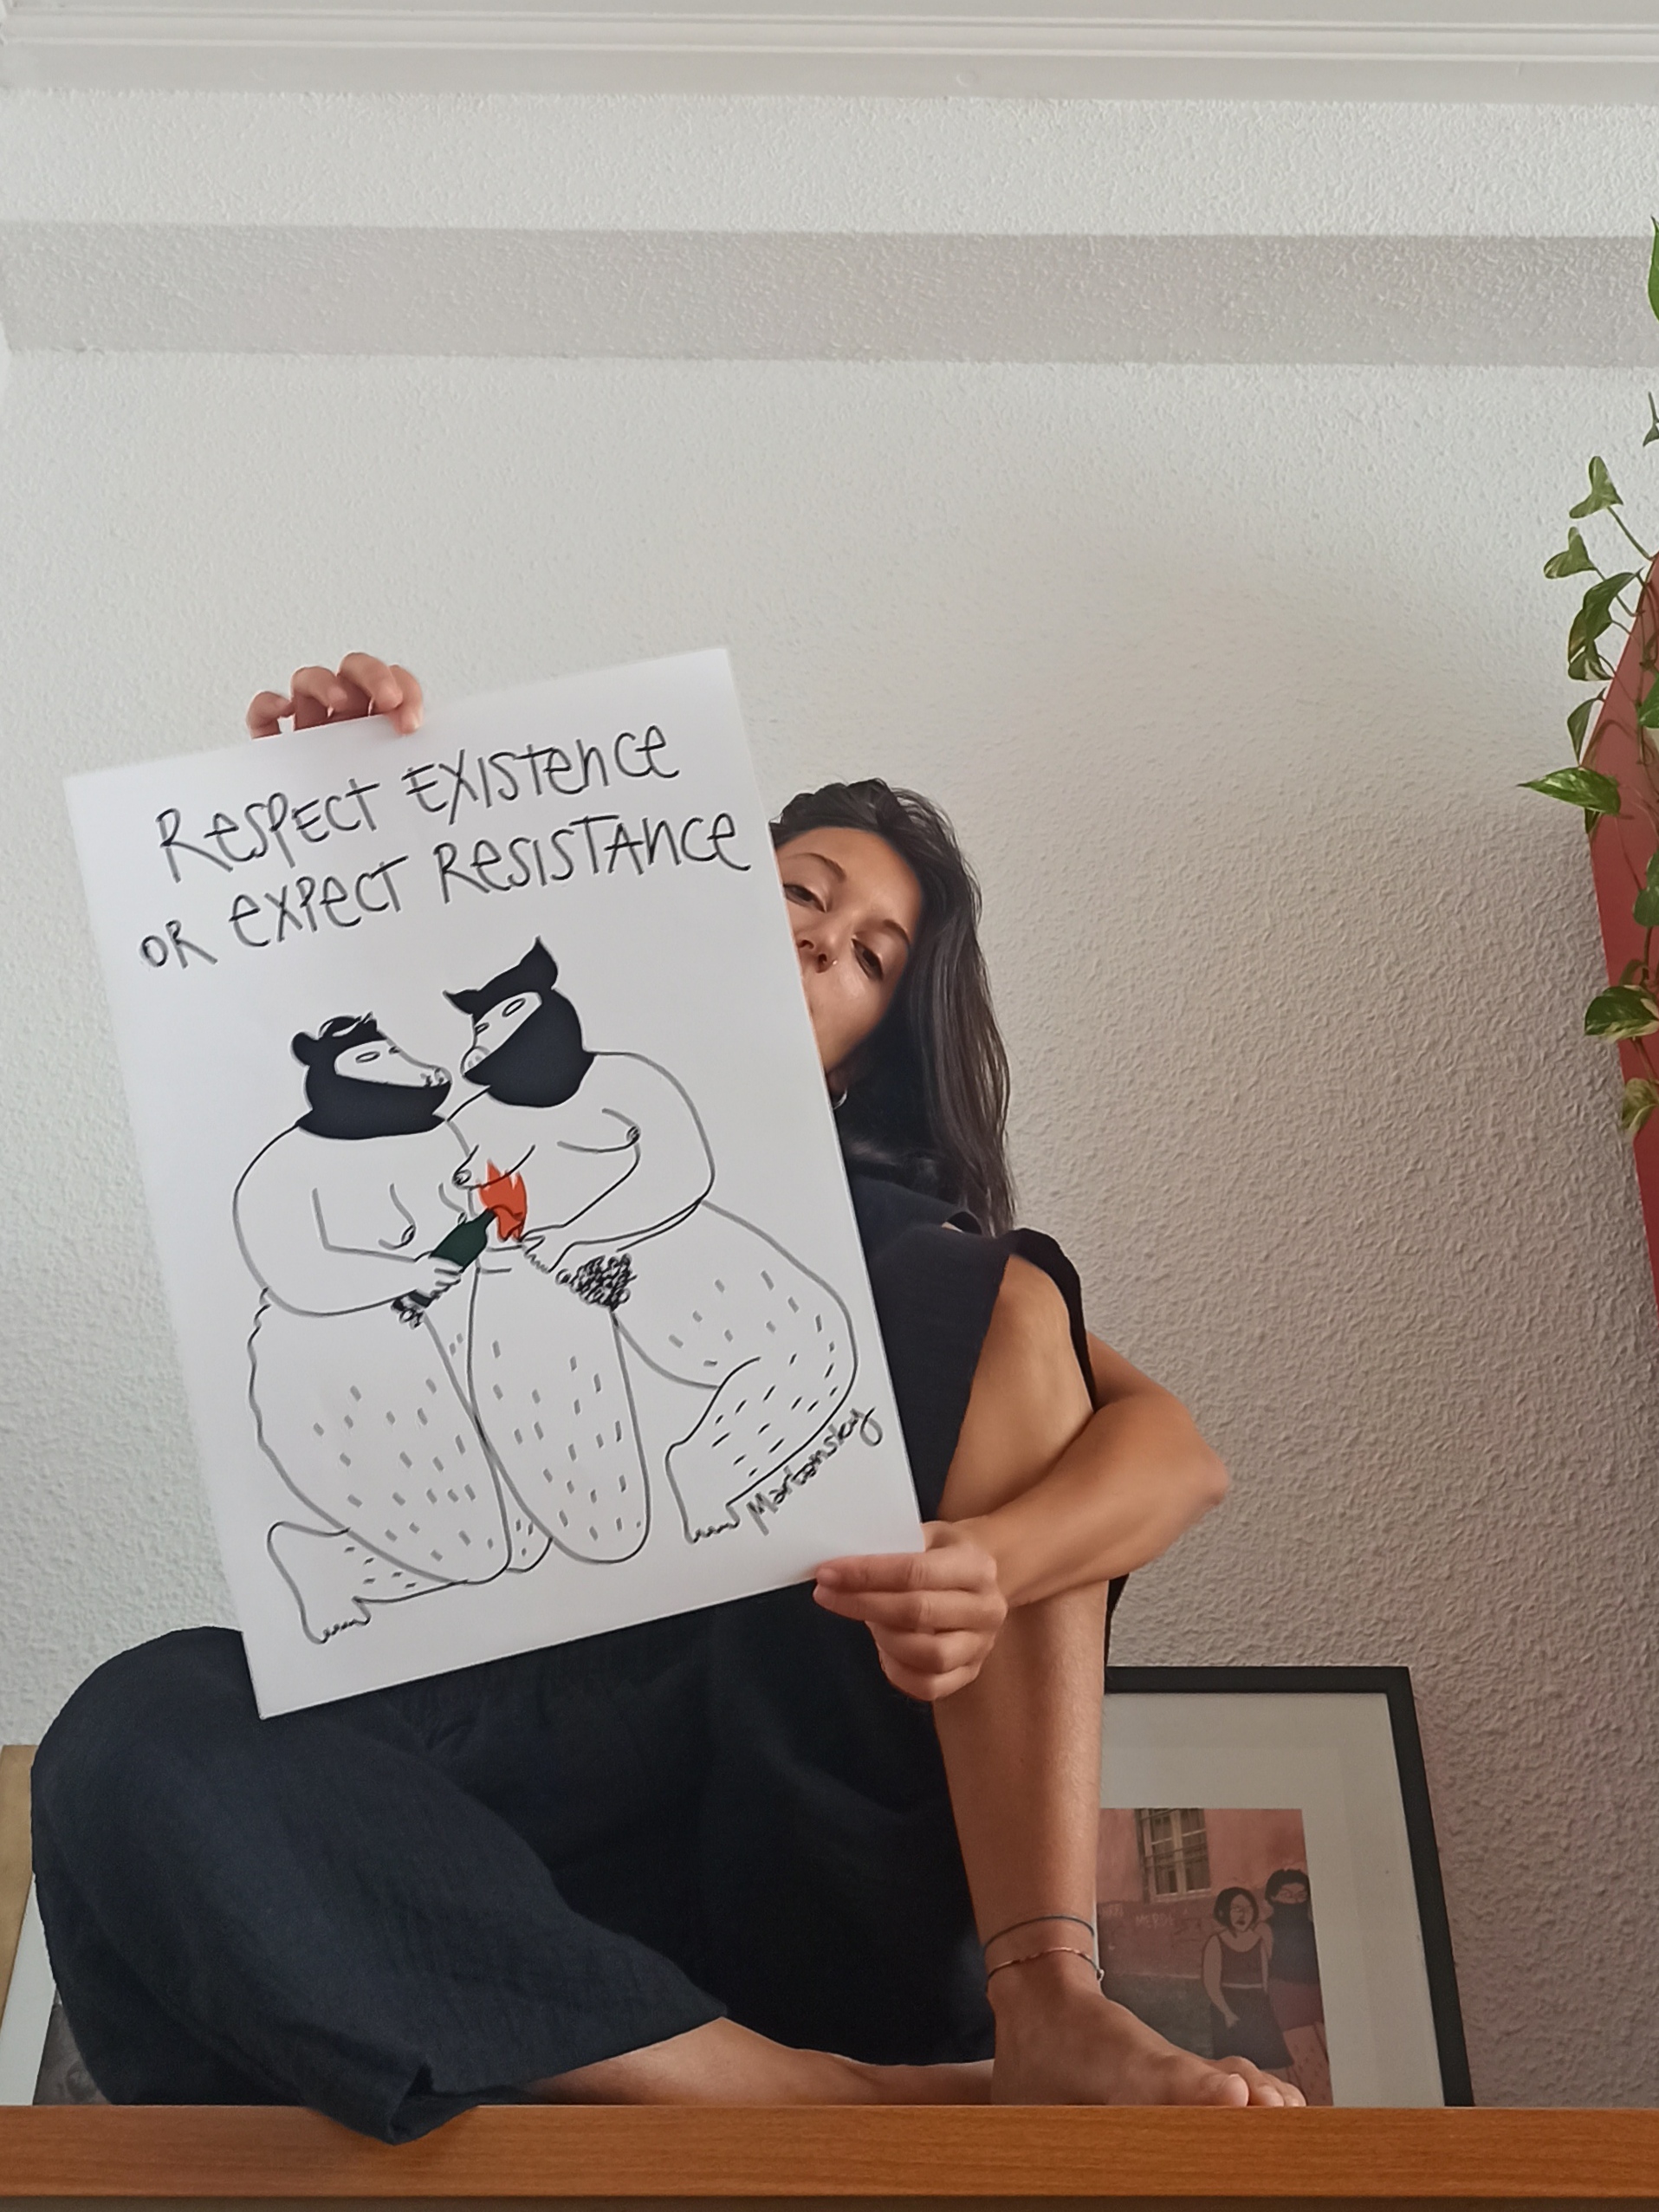 RESPECT EXISTENCE
OR EXPECT RESISTANCE
Martansky